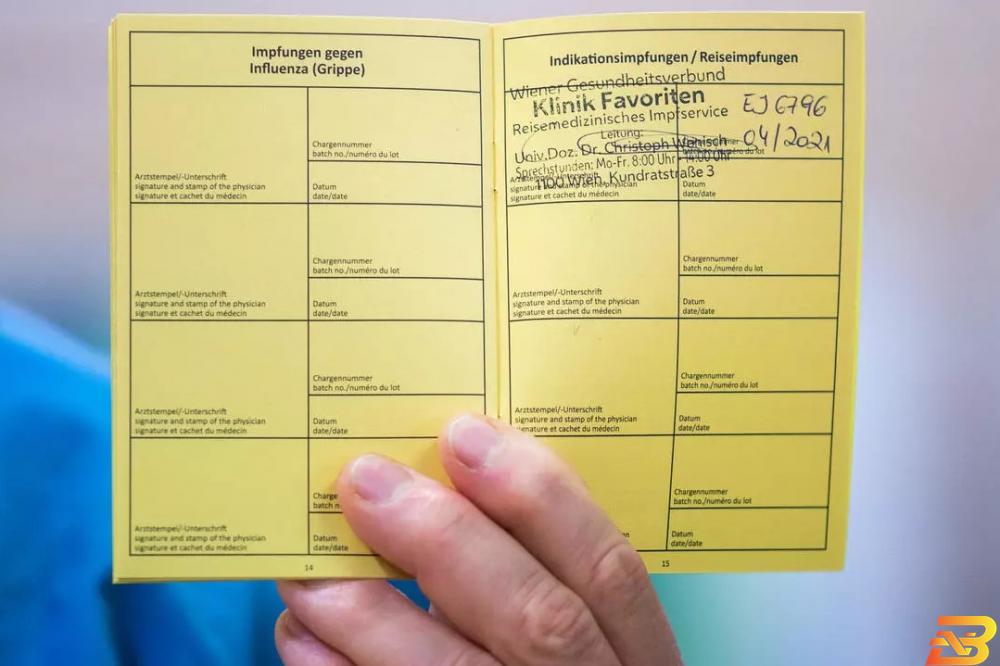 Impfungen gegen
Influenza (Grippe)
Chargennummer
batch no./numéro du lot
Arztstempel/-Unterschrift
signature and stamp of the physician
signature et cachet du médecin
Datum
date/date
Chargennummer
batch no./numéro du lot
Arztstempel/-Unterschrift
signature and stamp of the physician
signature et cachet du médecin
Datum
date/date
Chargennummer
batch no./numéro du lot
Arztstempel/-Unterschrift
signature and stamp of the physician
signature et cachet du médecin
Datum
date/date
Charge
batch n
Arztstempel/-Unterschrift
signature and stamp of the physician
signature et cachet du médecin
Datum
date/date
14
Indikationsimpfungen / Reiseimpfungen
Wiener Gesundheitsverbund
Klinik Favoriten
Reisemedizinisches Impfservice
Leitung:
Univ.Doz. Dr. Christoph Wenisch
Sprechstunden: Mo-Fr. 8:00 Uhr - 14:00 Uhr
1100 Wien, Kundratstraße 3
EJ 6796
04/2021
signature et cachet du médecin
Datum
date/date
Chargennummer
batch no./numéro du lot
Arztstempel/-Unterschrift
signature and stamp of the physician
signature et cachet du médecin
Datum
date/date
Chargennummer
batch no./numéro du lot
Arztstempel/-Unterschrift
signature and stamp of the physician
signature et cachet du médecin
Datum
date/date
Chargennummer
batch no./numéro du lot
Datum
date/date
15